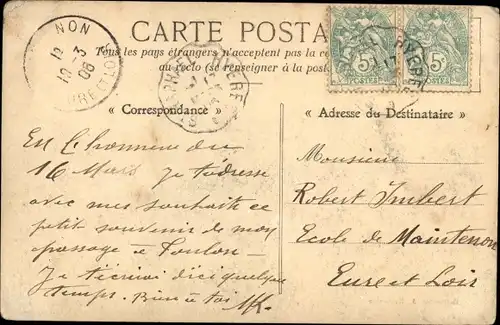 CARTE POSTA
Tous les pays étrangers n'acceptent pas la co
au recto (se renseigner à la poste
NON
19
10 -3
06
EURE ET LOIR
HYÈRES
HYÈRES
5 5
POSTES POSTES
« Correspondance »
« Adresse du Destinataire »
En l'honneur du
16 Mars je t'adresse
avec mes souhaits ce
petit souvenir de mon
passage à Toulon —
Je t'écrirai d'ici quelque
temps. Bien à toi
Monsieur
Robert Imbert
Ecole de Maintenon
Eure et Loir